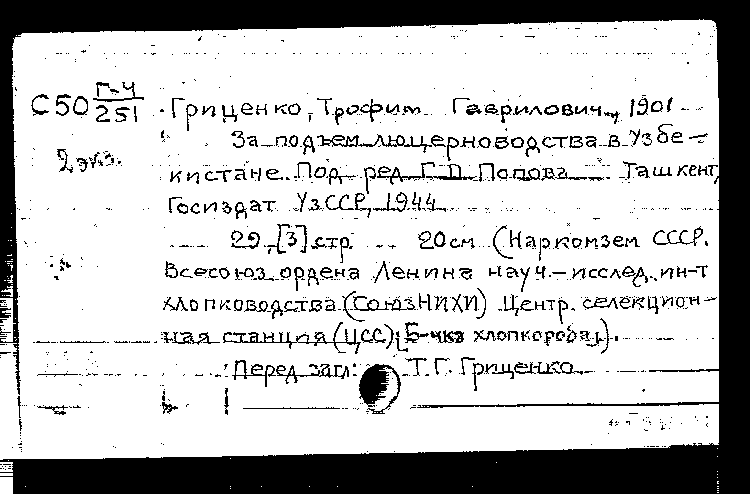 С50 Г-4/251 Гриценко, Трофим Гаврилович, 1901
За подъем люцерноводства в Узбе-
2 экз.
кистане. Под ред Г.П. Попова Ташкент,
Госиздат УзССР, 1944
29, [3] стр. 20см (Наркомзем СССР.
Всесоюз. ордена Ленина науч.-исслед. ин-т
хлопководства (СоюзНИХИ) Центр. селекцион-
ная станция (ЦСС) [Б-чка хлопкороба]).
Перед загл: Т.Г. Гриценко